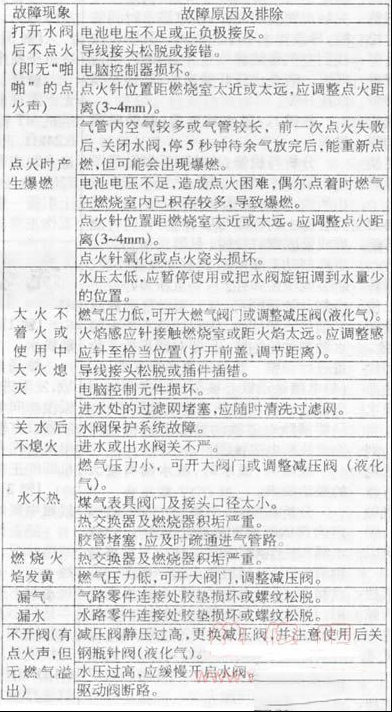 故障现象
故障原因及排除
打开水阀
后不点火
(即无“啪
啪”的点
火声)
电池电压不足或正负极接反。
导线接头松脱或接错。
电脑控制器损坏。
点火针位置距燃烧室太近或太远,应调整点火距
离(3~4mm)。
点火时产
生爆燃
气管内空气较多或气管较长，前一次点火失败
后,关闭水阀,停5秒钟待余气放完后,能重新点
燃,但可能会出现爆燃。
电池电压不足,造成点火困难,偶尔点着时燃气
在燃烧室内已积存较多,导致爆燃。
点火针位置距燃烧室太近或太远。应调整点火距
离(3~4mm)。
点火针氧化或点火瓷头损坏。
大火不
着火或
使用中
大火熄
灭
水压太低,应暂停使用或把水阀旋钮调到水量少
的位置。
燃气压力低,可开大燃气阀门或调整减压阀(液化气)。
火焰感应针接触燃烧室或距火焰太远。应调整感
应针至恰当位置(打开前盖,调节距离)。
导线接头松脱或插件插错。
电脑控制元件损坏。
进水处的过滤网堵塞,应随时清洗过滤网。
关水后
不熄火
水阀保护系统故障。
进水或出水阀关不严。
水不热
燃气压力小，可开大阀门或调整减压阀（液化
气)。
煤气表具阀门及接头口径太小。
热交换器及燃烧器积垢严重。
胶管堵塞,应及时疏通进气管路。
燃烧火
焰发黄
热交换器及燃烧器积垢严重。
燃气压力低,可开大阀门,调整减压阀。
漏气
气路零件连接处胶垫损坏或螺纹松脱。
漏水
水路零件连接处胶垫损坏或螺纹松脱。
不开阀(有
点火声,但
无燃气溢
出)
减压阀静压过高,更换减压阀,并注意使用后关
钢瓶针阀(液化气)。
水压过高,应缓慢开启水阀。
驱动阀断路。